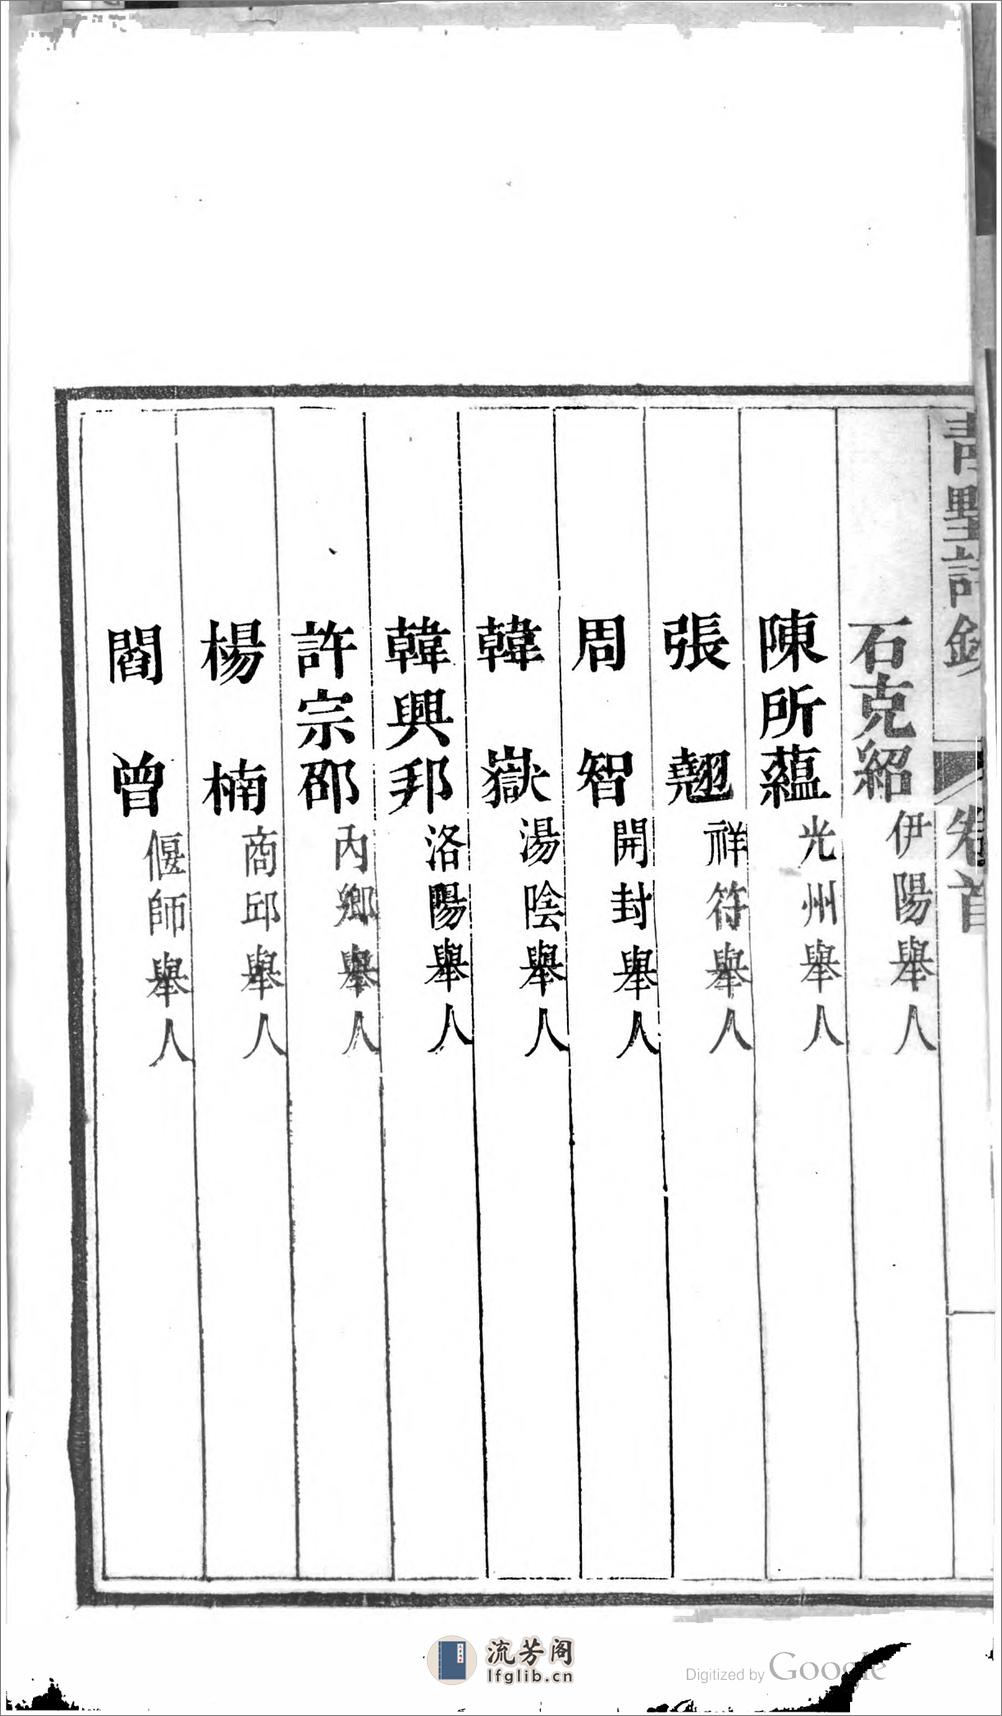 詩鈔 卷首
石克紹 伊陽舉人
陳所蘊 光州舉人
張翹 祥符舉人
周智 開封舉人
韓嶽 湯陰舉人
韓興邦 洛陽舉人
許宗邵 內鄉舉人
楊楠 商邱舉人
閻曾 偃師舉人
流芳阁
lfglib.cn
Digitized by Google